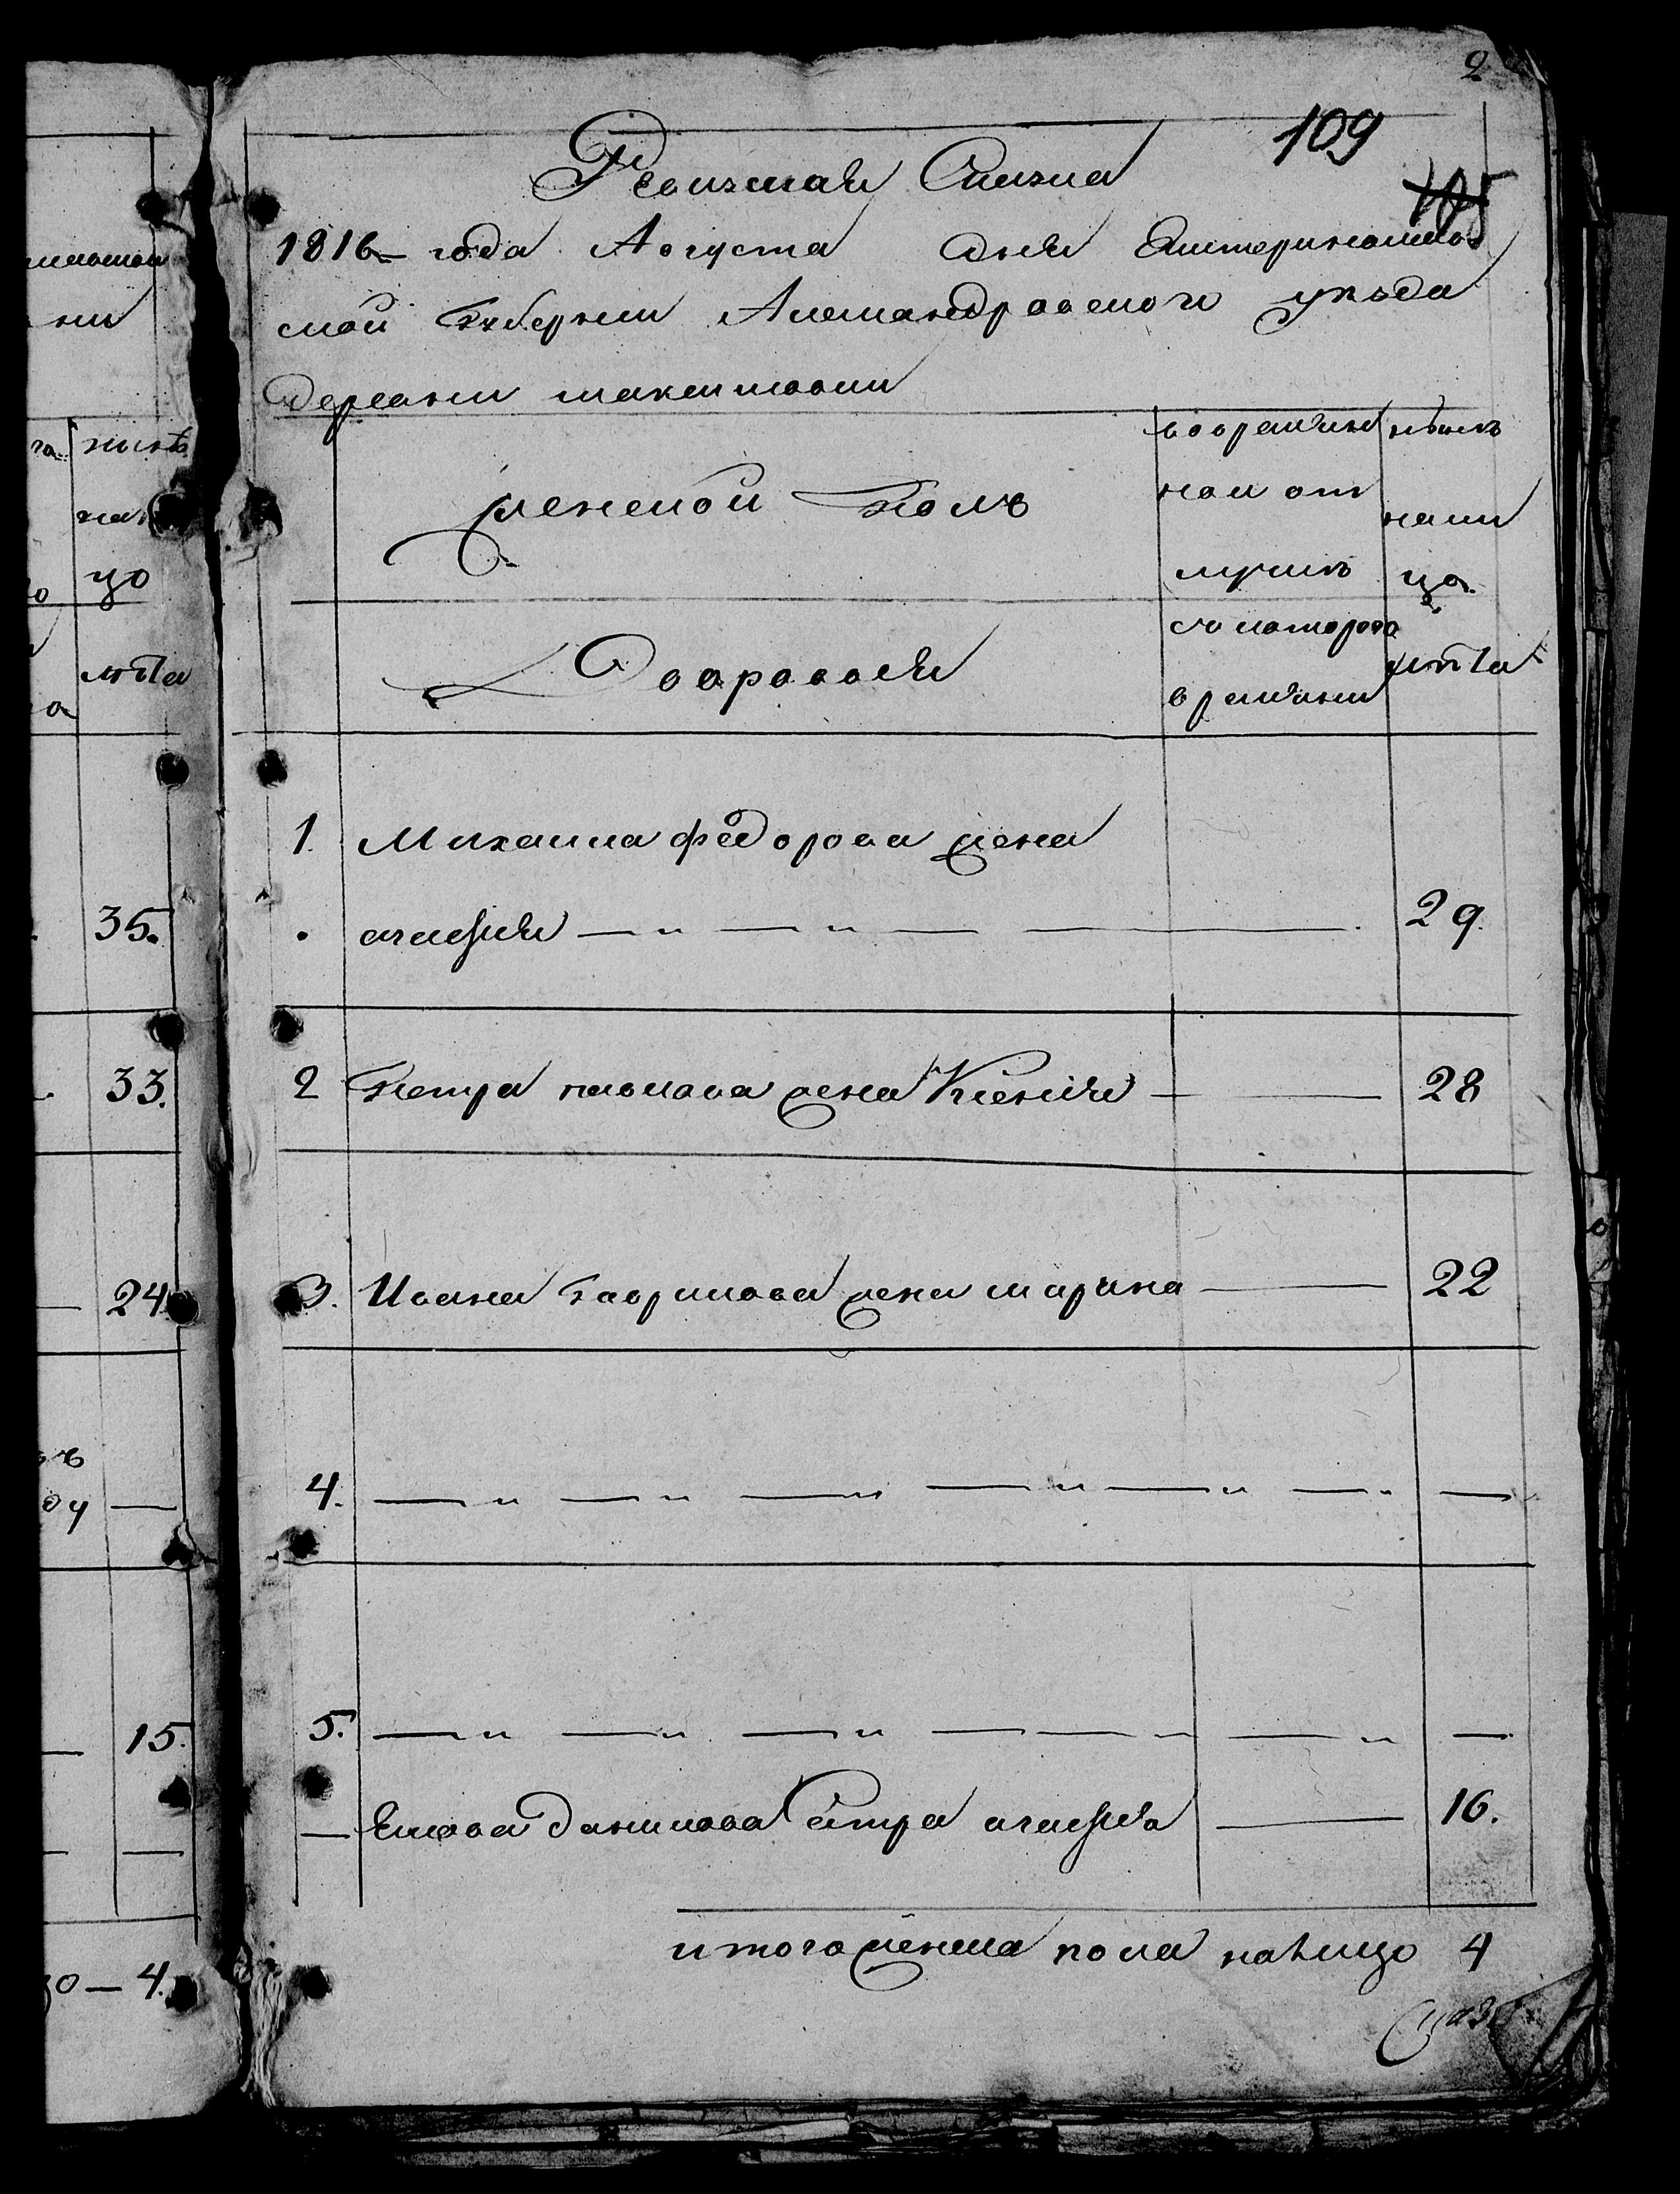 2
109
105
Ревизская Сказка
1816 года Августа дня Екатеринослав
ской губернии Александровского уезда
деревни максимовки
женской полъ
во времян
ной от
лучкъ
нынѣ
на ли
цо
Дворовыя
съ которого
времяни
лѣта
1. Михаила федорова жена
агафия — „ — „ — 29.
2 Петра павлова жена Ксения — 28
3. Ивана гаврилова жена марина — 22
4. — „ — „ — „ — „ — „ — „ —
5. — „ — „ — „ — „ — „ —
— Якова данилова сестра агафия — 16.
итого женска пола налицо 4
35.
33.
24.
15.
цо
лѣта
4.